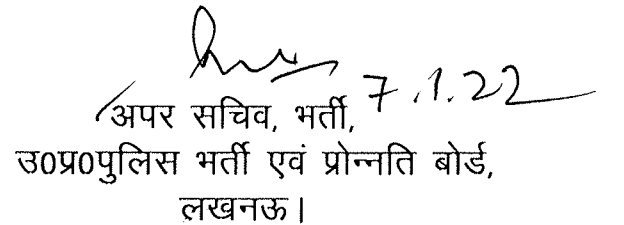 7.1.22
अपर सचिव, भर्ती,
उ0प्र0पुलिस भर्ती एवं प्रोन्नति बोर्ड,
लखनऊ।